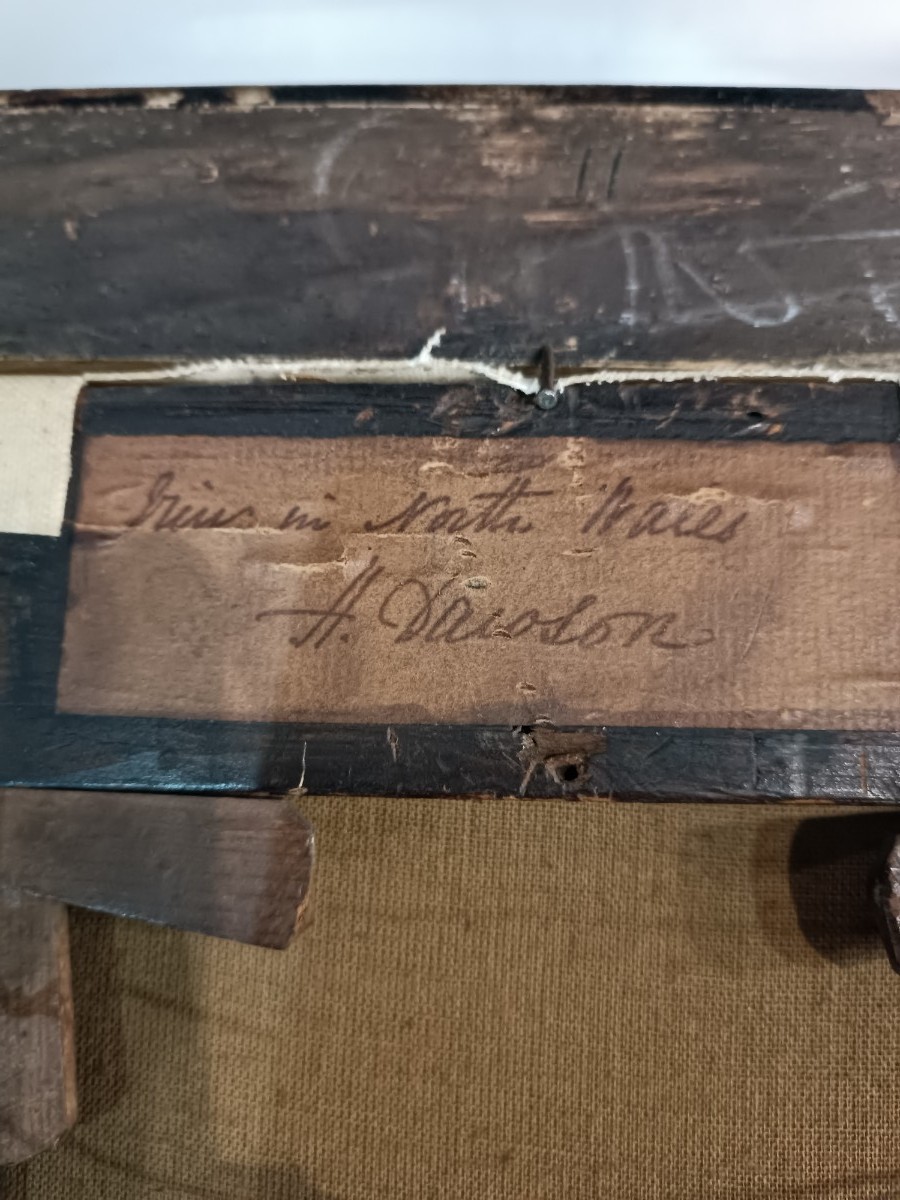 in North Wales
H. Dawson